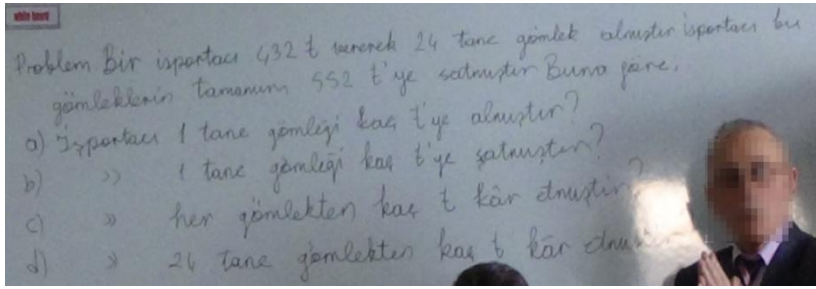 white board
Problem Bir isportacı 432 ₺ vererek 24 tane gömlek almıştır isportacı bu
gömleklerin tamamını 552 ₺'ye satmıştır Buna göre,
a) İşportacı 1 tane gömleği kaç ₺'ye almıştır?
b) » 1 tane gömleği kaç ₺'ye satmıştır?
c) » her gömlekten kaç ₺ kâr etmiştir?
d) » 24 tane gömlekten kaç ₺ kâr